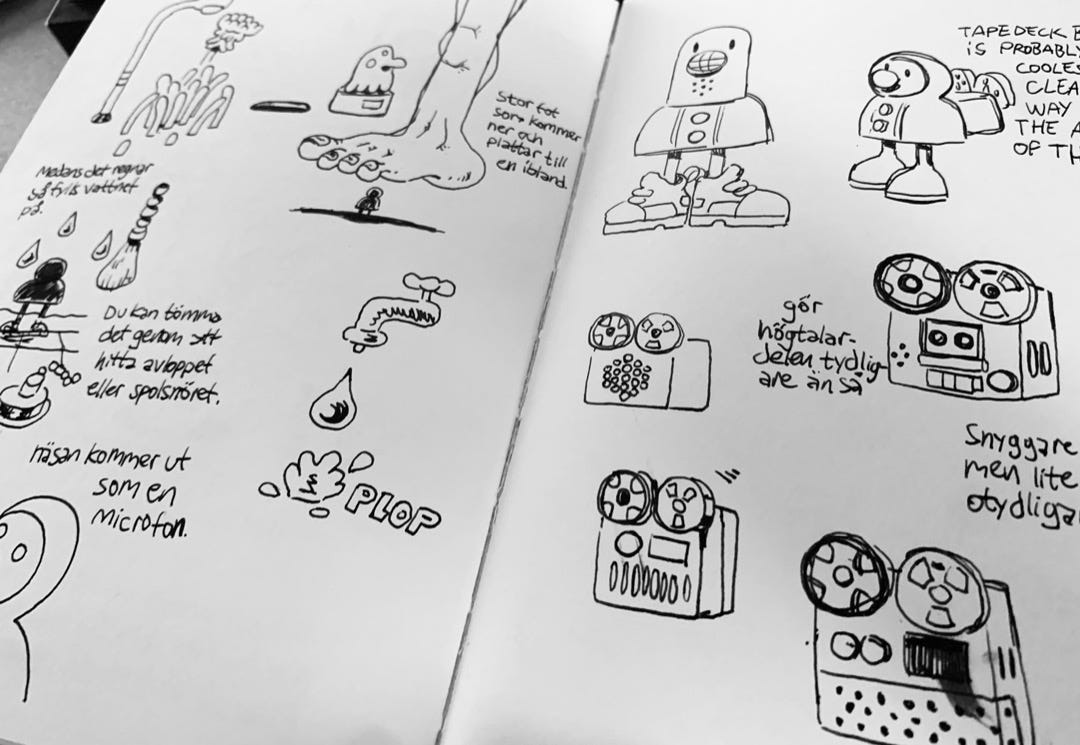 Medans det regnar
så fylls vattnet
på.
Stor fot
som kommer
ner och
plattar till
en ibland.
Du kan tömma
det genom att
hitta avloppet
eller spolsnöret.
näsan kommer ut
som en
microfon.
PLOP
TAPEDECK B
IS PROBABLY
COOLES
CLEA
WAY
THE A
OF TH
gör
högtalar-
delen tydlig
are än så
Snyggare
men lite
otydligar